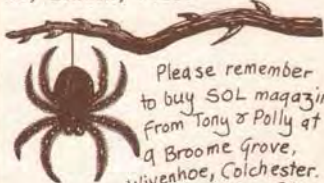 Please remember
to buy SOL magazin
From Tony & Polly at
9 Broome Grove,
Wivenhoe, Colchester.